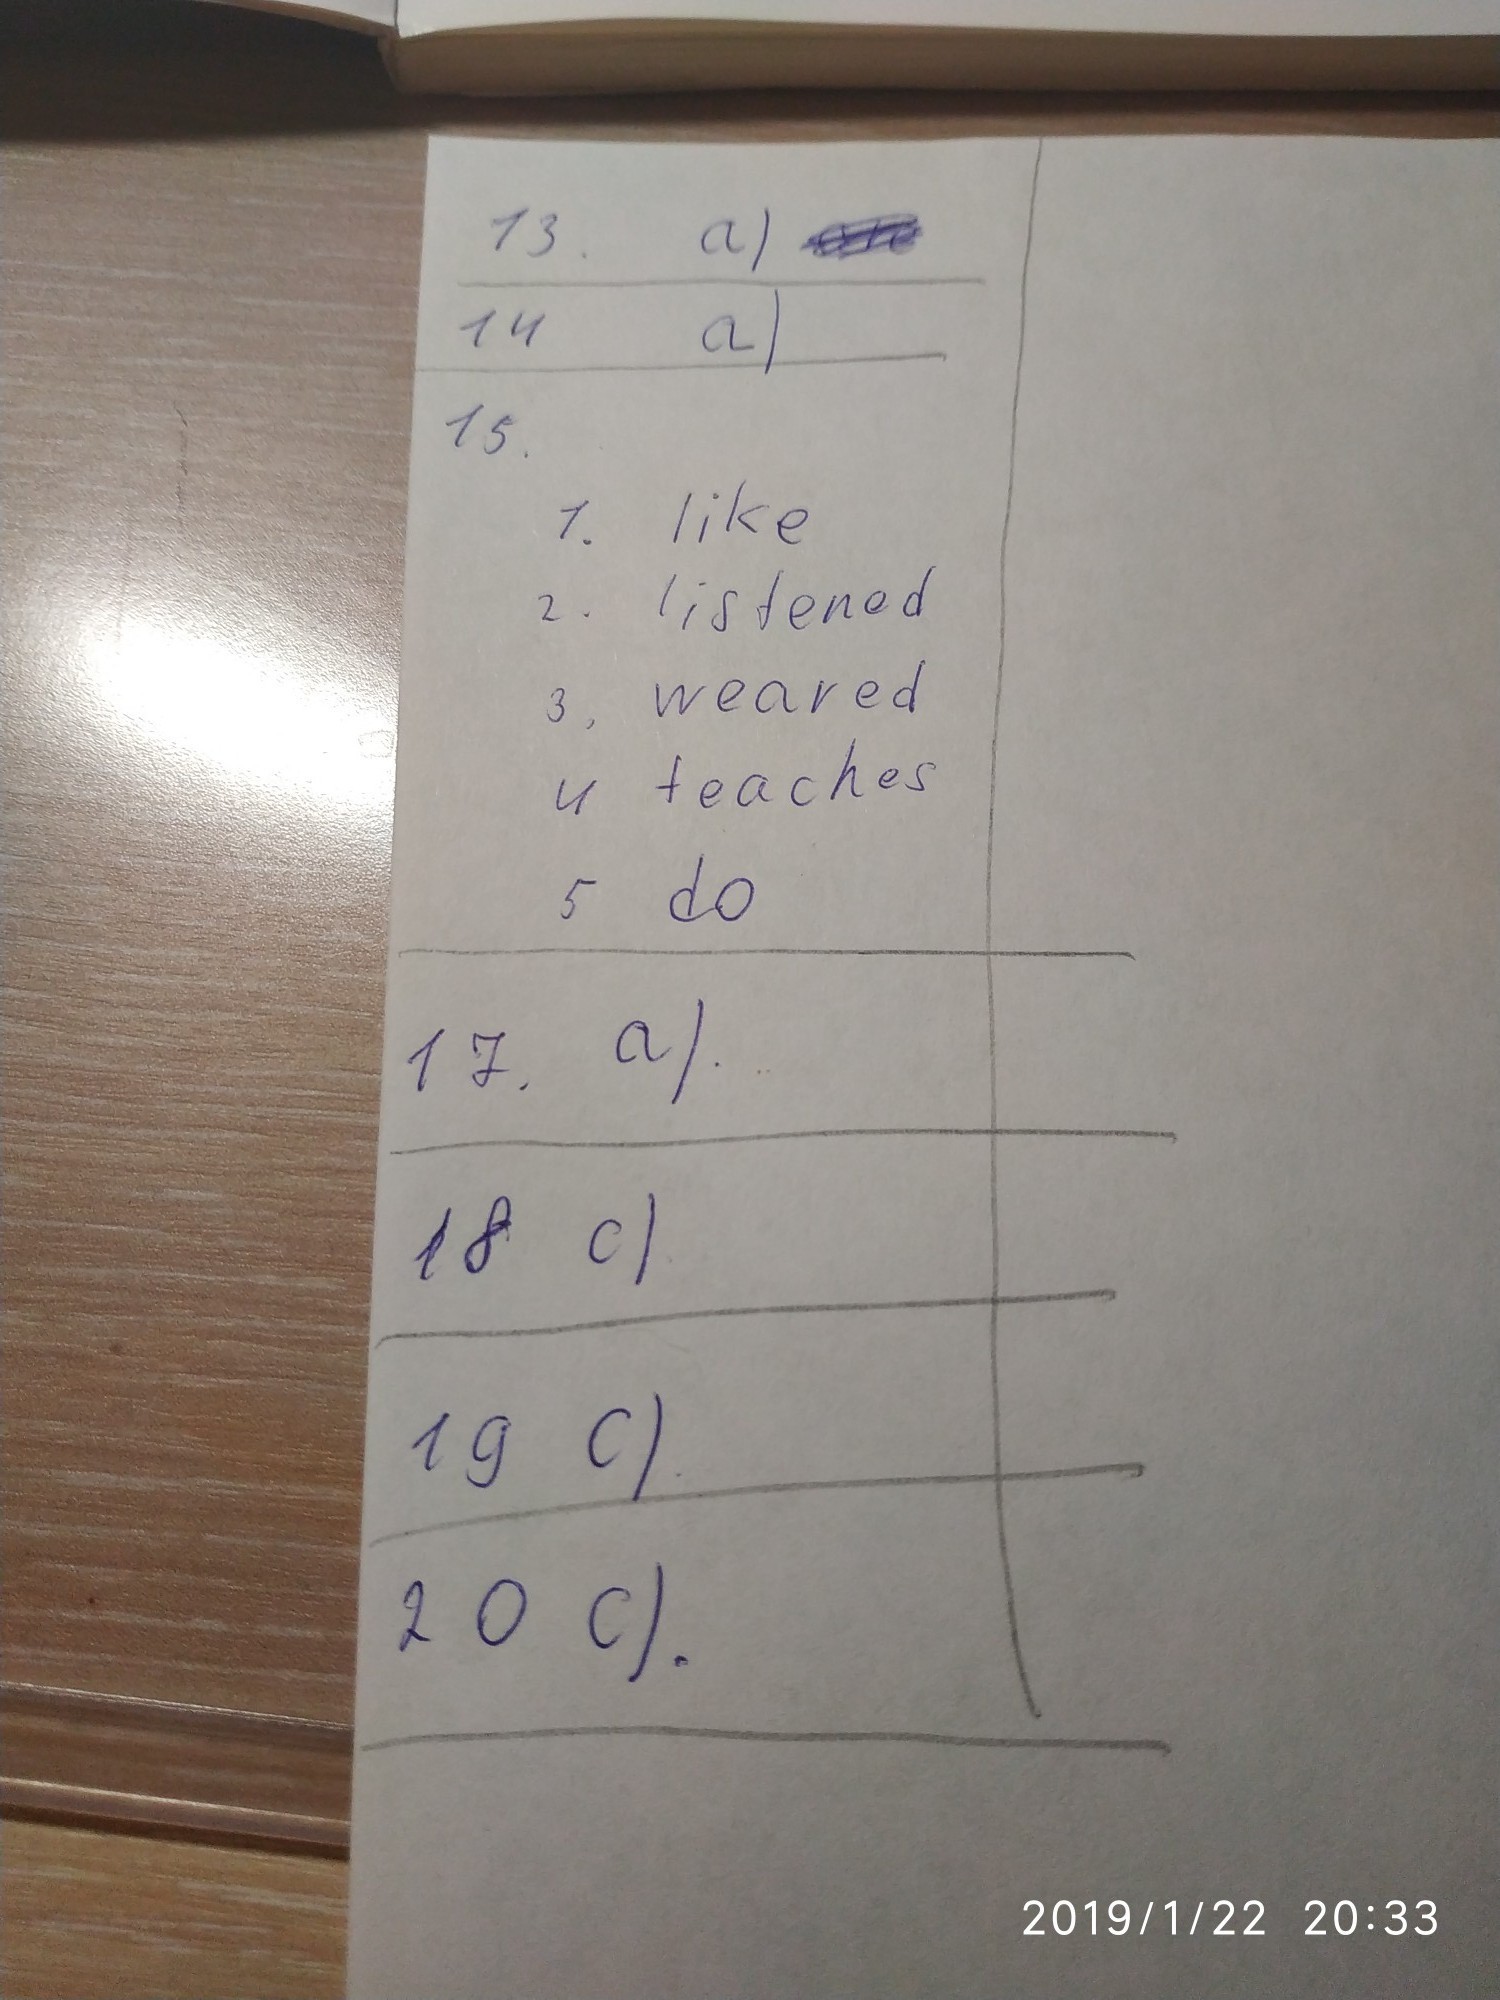 13. a)
14 a)
15.
1. like
2. listened
3, weared
4 teaches
5 do
17. a).
18 c)
19 c).
20 c).
2019/1/22 20:33